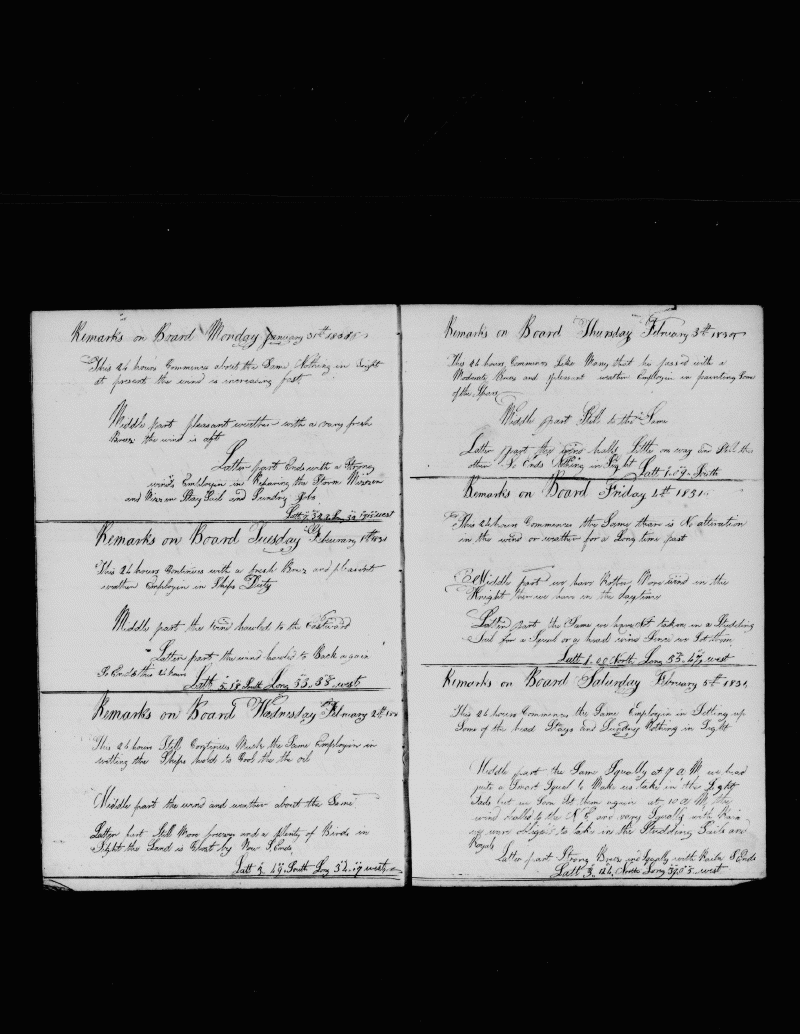 Remarks on Board Monday January 31th
This 24 hours Commences about the Same Nothing in Sight
at present the wind is increasing fast
Middle part pleasant weather with a very fresh
Breez the wind is aft
Latter part Ends with a Strong
winds Employin in Reparing the Storm Mizzen
and Mizzen StaySail and Sunday Jobs
Latt
Remarks on Board Tuesday February 1th
This 24 hours Continues with a fresh Breez and pleasent
weather Employin in Ships Duty
Middle part the wind hawled to the Eastward
Latter part the wind hawled to Back again
So Ends this 24 hours
Latt 5.18 South Long 35..58 west
Remarks on Board Wadnesday February 2th
This 24 hours Still Continues Much the Same Employin in
wetting the Ships hold to Cool the oil
Middle part the wind and weather about the Same
Latter part Still More and a plenty of Birds in
Sight the Land is by Now S Ends
Latt 2.49 South Long 34..19 west
Remarks on Board Thursday February 3th
This 24 hours Commences Like Many that he passed with a
Moderate Breez and pleasent weather Employin in painting Som
of the Spars
Middle part Still to the Same
Latter part the wind halls Little on way and Still this
then So Ends Nothing in Sight Latt 1.09 South
Remarks on Board Friday 4th 1831
This 24 hours Commences the Same thare is No alteration
in the wind or weather for a Long time past
Middle part we have Rother More wind in the
Knight then we have in the daytime
Latter part the Same we have Not taken in a Studding
Sail for a Squal or a head wind Sence we Set them
Latt 1.20 North Long 35.47 west
Remarks on Board Saturday February 5th 1831
This 24 hours Commences the Same Employin in Setting up
Som of the head Stays and Sunday Nothing in Sight
Middle part the Same Squally at 7 a M we had
quite a Smart Squal to Make us take in the Light
Sails but we Soon Set them again at 10 a M the
wind halls to the N E and vary Squally with Rain
we were obliged to take in the Studding Sails and
Royals
Latter part Strong Breez and Squally with Rain S Ends
Latt 3.44 North Long west